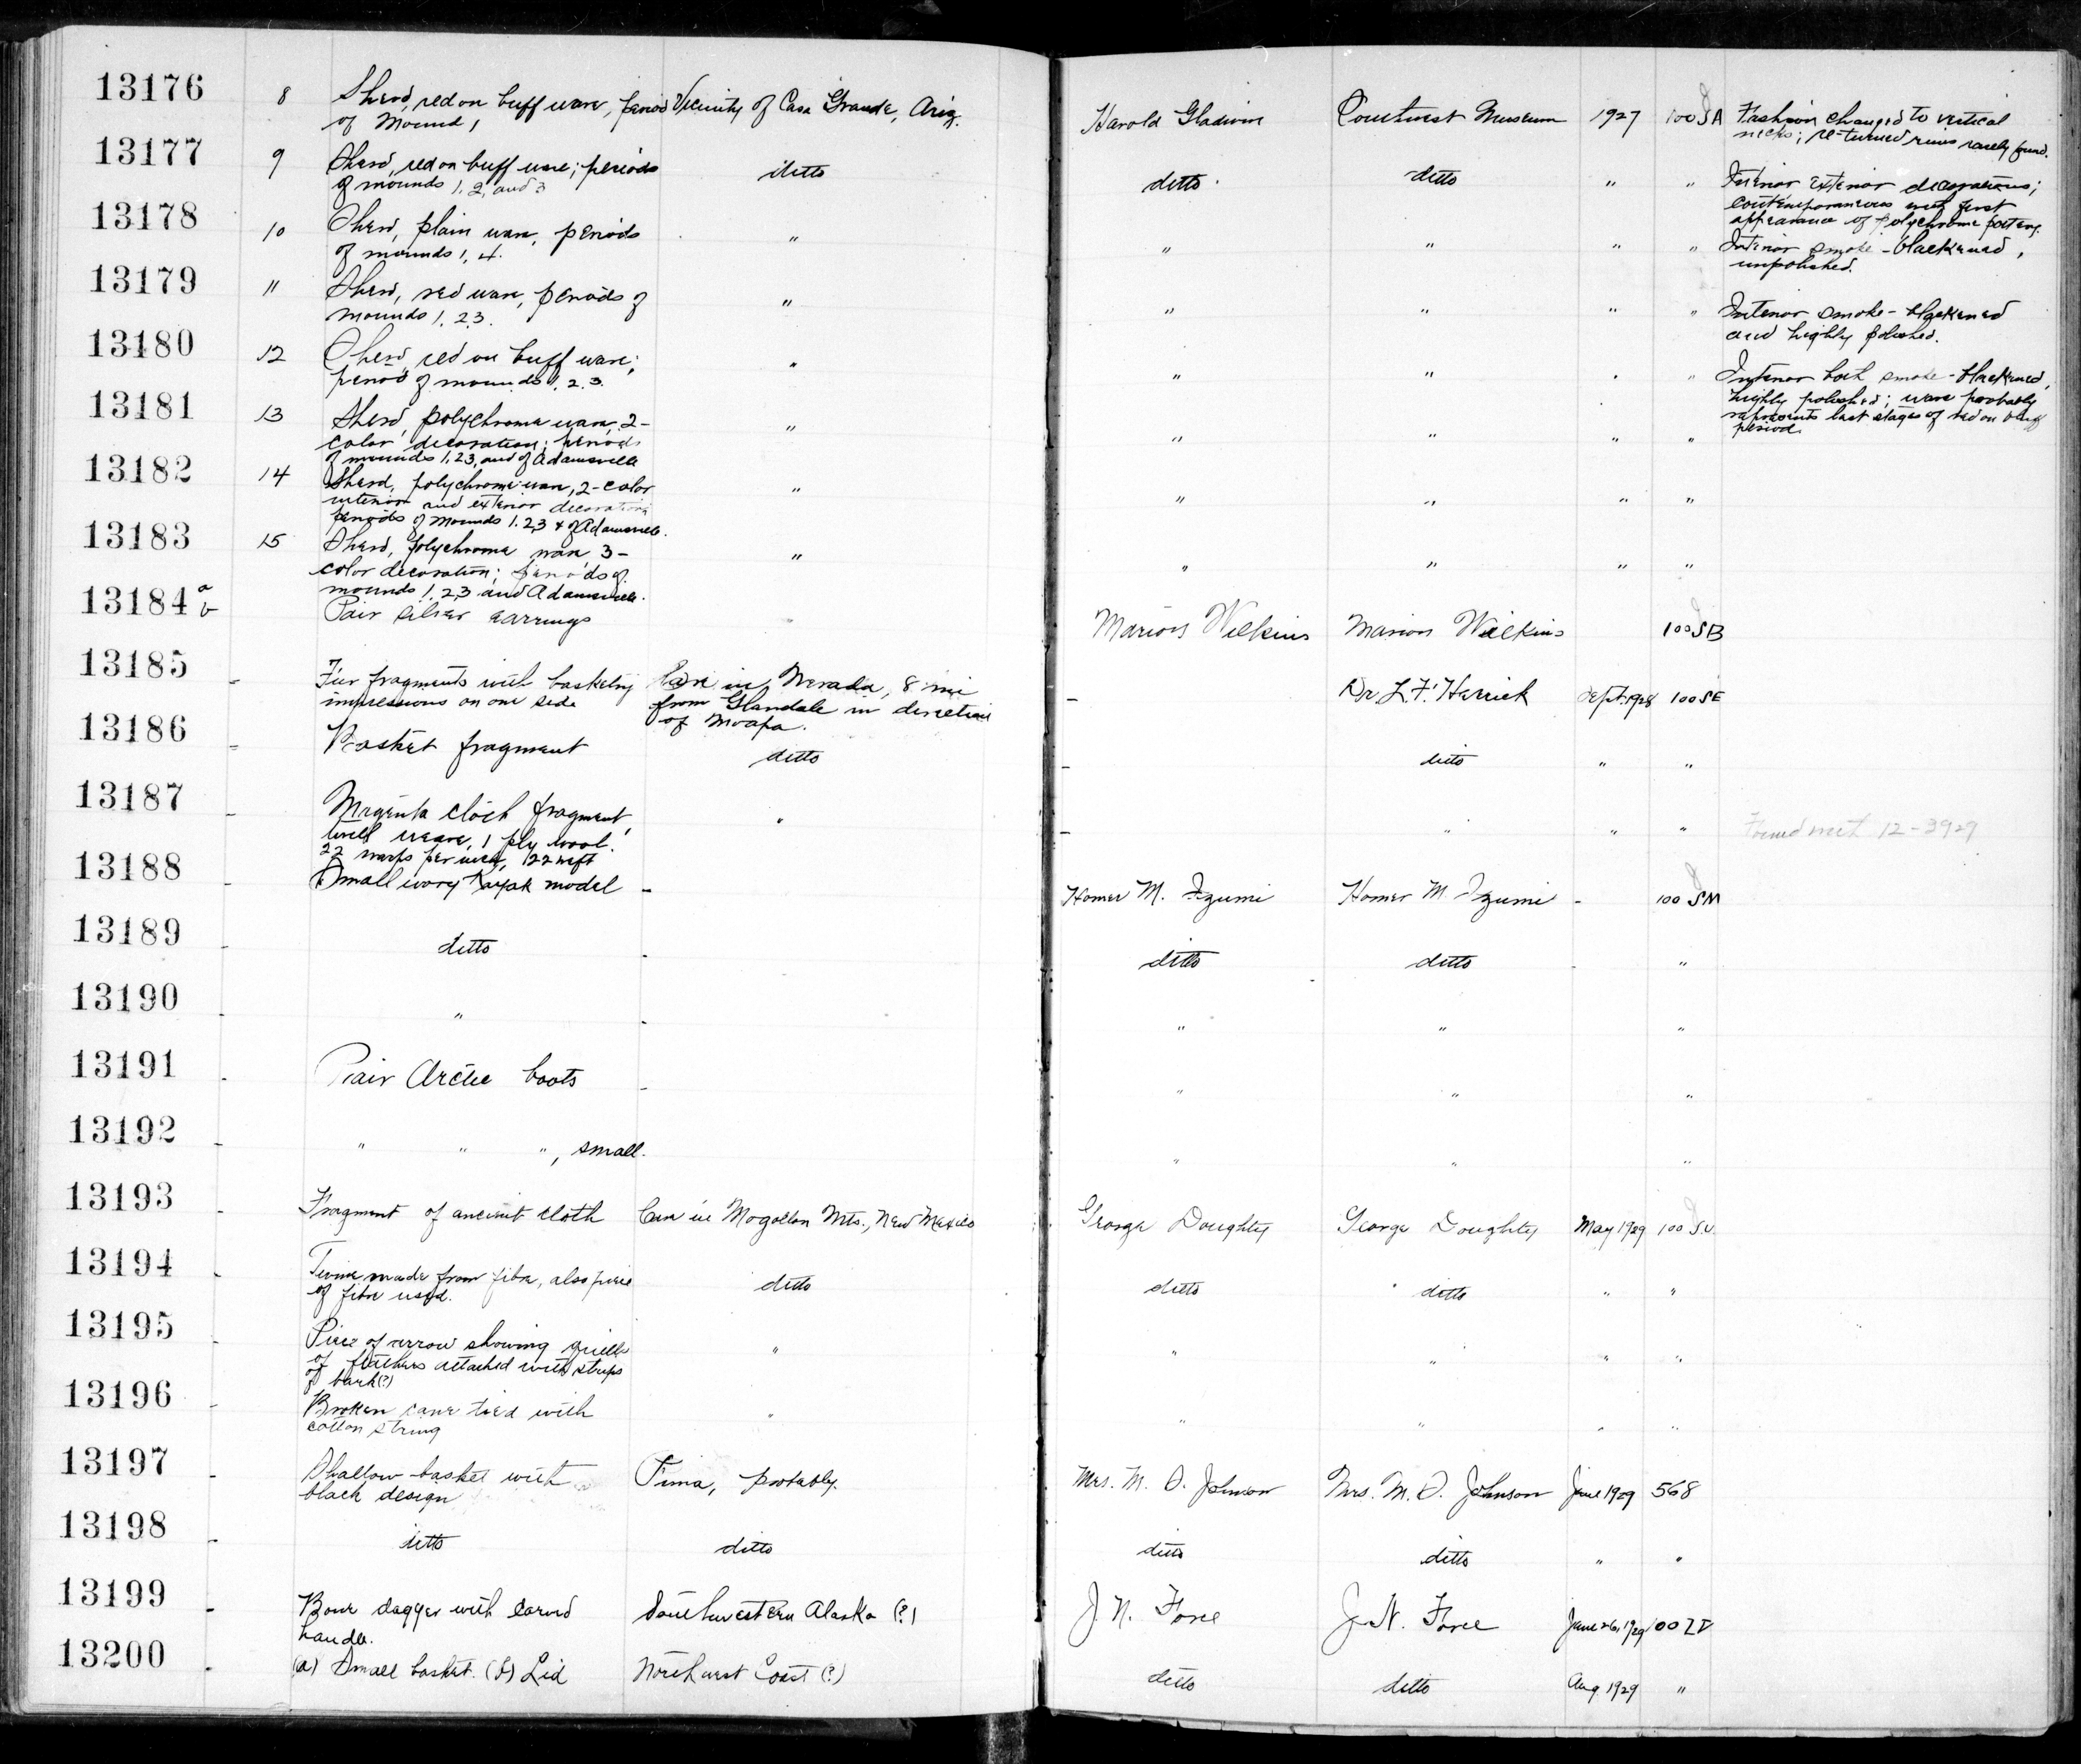 13176 8 Sherd, red on buff ware, period Vicinity of Casa Grande, Ariz. Harold Gladwin Southwest Museum 1927 100SA Fashion changed to vertical
of Mound 1 necks; re-turned rims rarely found.
13177 9 Sherd, red on buff ware; periods ditto ditto ditto " " Interior exterior decorations;
of mounds 1, 2, and 3 contemporaneous with first
appearance of polychrome pottery.
13178 10 Sherd, plain ware, periods " " " " " Interior smoke-blackened,
of mounds 1, 4. unpolished.
13179 11 Sherd, red ware, periods of " " " " " Interior smoke-blackened
mounds 1, 2, 3. and highly polished.
13180 12 Sherd, red on buff ware; " " " " " Interior both smoke-blackened,
period of mounds 1, 2, 3. highly polished; ware probably
represents last stages of red on buff
period.
13181 13 Sherd, polychrome ware, 2- " " " " "
color decoration; periods
of mounds 1, 2, 3, and of Adamsville
13182 14 Sherd, polychrome ware, 2-color " " " " "
interior and exterior decoration
periods of Mounds 1, 2, 3 & of Adamsville.
13183 15 Sherd, polychrome ware 3- " " " " "
color decoration; periods of
mounds 1, 2, 3 and Adamsville.
13184 a b Pair silver earrings Marion Wilkins Marion Wilkins 100SB
13185 - fragments with basketry Cave in Nevada, 8 mi - Dr L. F. Herrick Sept. 1928 100SE
impressions on one side from Glendale in direction
of Moapa.
13186 - Basket fragment ditto - ditto " "
13187 - Magenta cloth fragment, " - " " " Found with 12-3929
twill weave, 1 ply wool.
22 warps per inch, 22 weft
13188 - Small ivory Kayak model - Homer M. Izumi Homer M. Izumi - 100 SM
13189 - ditto - ditto ditto - "
13190 - " - " " "
13191 - Pair Arctic boots - " " "
13192 - " " ", small. " " "
13193 - Fragment of ancient cloth Cave in Mogollon Mts., New Mexico George Doughty George Doughty May 1929 100 S.U.
13194 - Twine made from fibre, also piece ditto ditto ditto " "
of fibre used.
13195 - Piece of arrow showing quills " " " " "
of feathers attached with strips
of bark(?)
13196 - Broken cane tied with " " " " "
cotton string
13197 - Shallow basket with Pima, probably. Mrs. M. O. Johnson Mrs. M. O. Johnson June 1929 568
black design
13198 - ditto ditto ditto ditto " "
13199 - Bone dagger with carved Southwestern Alaska (?) J. N. Force J. N. Force June 26, 1929 100ZD
handle.
13200 - (a) Small basket. (b) Lid Northwest Coast (?) ditto ditto Aug 1929 "